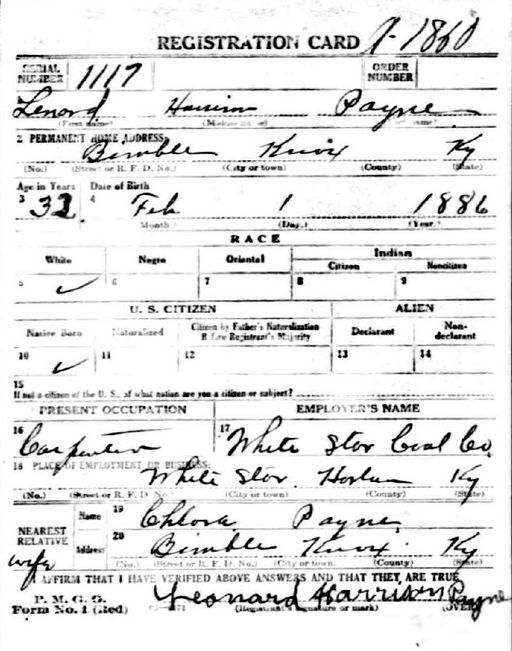 REGISTRATION CARD A-1860
SERIAL NUMBER 1117 ORDER NUMBER
Lenord Harrison Payne
(First name) (Middle name) (Last name)
2 PERMANENT HOME ADDRESS:
Bimble Knox Ky
(No.) (Street or R. F. D. No.) (City or town) (County) (State)
Age in Years Date of Birth
3 32 4 Feb 1 1886
(Month) (Day) (Year)
RACE
White Negro Oriental Indian
Citizen Noncitizen
5 ✓ 6 7 8 9
U. S. CITIZEN ALIEN
Native Born Naturalized Citizen by Father's Naturalization Before Registrant's Majority Declarant Non-declarant
10 ✓ 11 12 13 14
15
If not a citizen of the U. S., of what nation are you a citizen or subject?
PRESENT OCCUPATION EMPLOYER'S NAME
16 Carpenter 17 White Star Coal Co
18 PLACE OF EMPLOYMENT OR BUSINESS:
White Star Harlan Ky
(No.) (Street or R. F. D. No.) (City or town) (County) (State)
NEAREST RELATIVE Name 19 Chlora Payne
wife Address 20 Bimble Knox Ky
(No.) (Street or R. F. D. No.) (City or town) (County) (State)
I AFFIRM THAT I HAVE VERIFIED ABOVE ANSWERS AND THAT THEY ARE TRUE
P. M. G. O.
Form No. 1 (Red) Leonard Harrison Payne
(Registrant's signature or mark) (OVER)